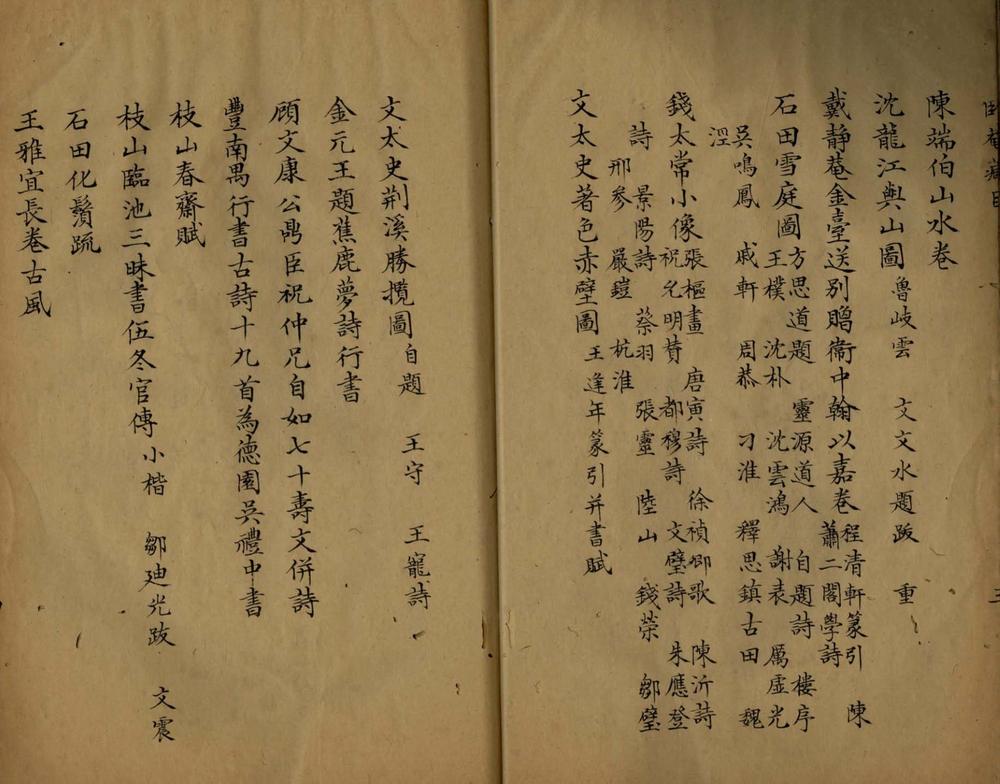 陳端伯山水卷
沈龍江與山圖 魯岐雲 文文水題跋 重
戴靜菴金臺送別贈衛中翰以嘉卷 程清軒篆引 陳
蕭二閣學詩
石田雪庭圖 方思道題 靈源道人 自題詩 樓序
王樸 沈朴 沈雲鴻 謝表 厲虛光
吳鳴鳳 戚軒 周恭 刁淮 釋思鎮古田 魏
涇
錢太常小像 張樞畫 唐寅詩 徐禎卿歌 陳沂詩
祝允明贊 都穆詩 文璧詩 朱應登
詩 景陽詩 蔡羽 張靈 陸山 錢榮 鄒璧
邢參 嚴鎧 杭淮
文太史著色赤壁圖 王逢年篆引并書賦
文太史荆溪勝攬圖 自題 王守 王寵詩
金元玉題蕉鹿夢詩行書
顧文康公鼎臣祝仲兄自如七十壽文併詩
豐南禺行書古詩十九首為德園吳禮中書
枝山春齋賦
枝山臨池三昧書伍冬官傳 小楷 鄒廸光跋 文震
石田化鬚疏
王雅宜長卷古風